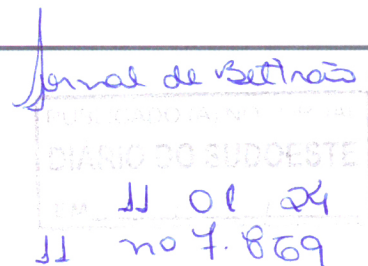 Jornal de Beltrão
PUBLICADO(A) NO JORNAL
DIÁRIO DO SUDOESTE
EM 11 01 24
11 no 7.869